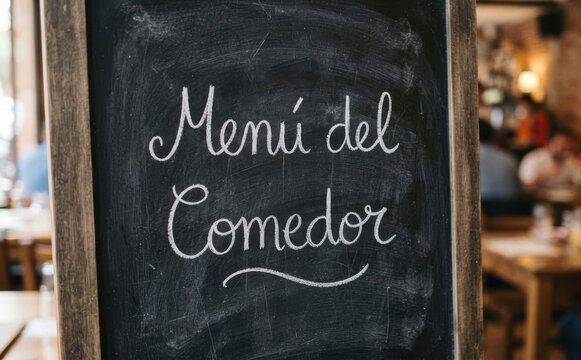 Menú del
Comedor